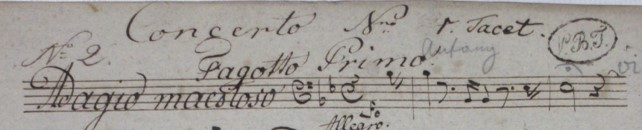 Concerto Nro 1. Tacet.
No 2. Fagotto Primo.
Adagio maestoso
Allegro.